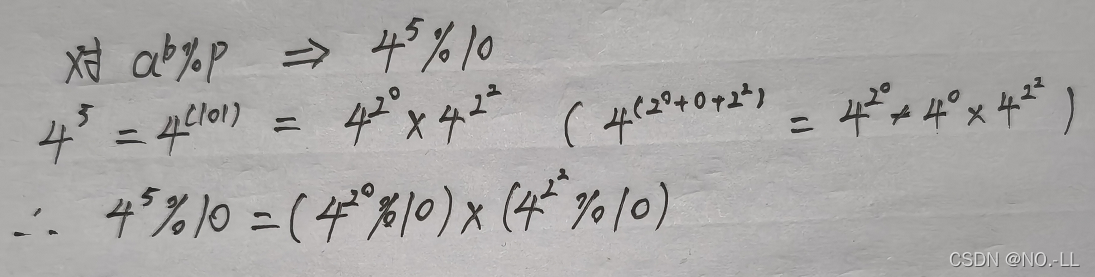 对 a^b%p ⇒ 4^5%10
4^5 = 4^(101) = 4^2^0 × 4^2^2 ( 4^(2^0+0+2^2) = 4^2^0 × 4^0 × 4^2^2 )
∴ 4^5%10 = (4^2^0%10) × (4^2^2%10)
CSDN @NO.-LL